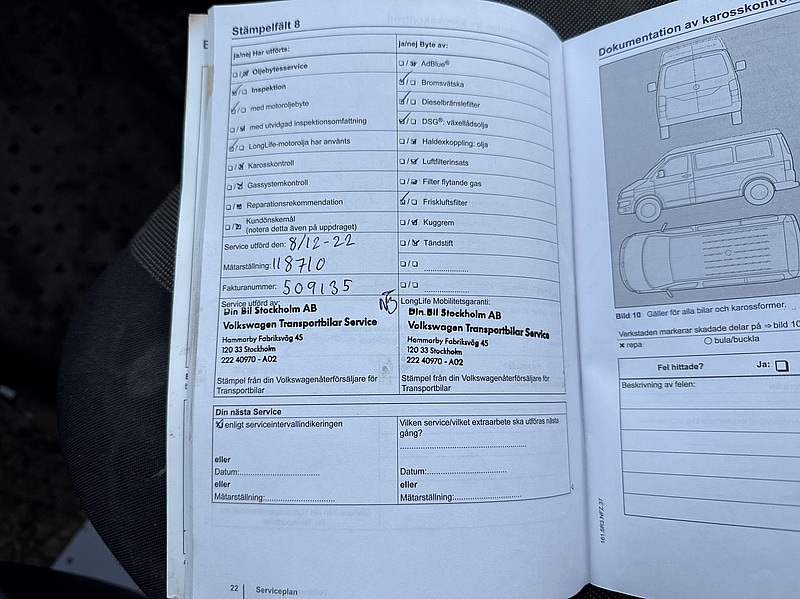 Stämpelfält 8
ja/nej Har utförts:
Oljebytesservice
Inspektion
med motoroljebyte
med utvidgad inspektionsomfattning
LongLife-motorolja har använts
Karosskontroll
Gassystemkontroll
Reparationsrekommendation
Kundönskemål
(notera detta även på uppdraget)
Service utförd den: 8/12-22
Mätarställning: 118710
Fakturanummer: 509135
Service utförd av:
Din Bil Stockholm AB
Volkswagen Transportbilar Service
Hammarby Fabriksväg 45
120 33 Stockholm
222 40970 - A02
Stämpel från din Volkswagenåterförsäljare för
Transportbilar
ja/nej Byte av:
AdBlue®
Bromsvätska
Dieselbränslefilter
DSG®: växellådsolja
Haldexkoppling: olja
Luftfilterinsats
Filter flytande gas
Friskluftsfilter
Kuggrem
Tändstift
LongLife Mobilitetsgaranti:
Din Bil Stockholm AB
Volkswagen Transportbilar Service
Hammarby Fabriksväg 45
120 33 Stockholm
222 40970 - A02
Stämpel från din Volkswagenåterförsäljare för
Transportbilar
Din nästa Service
enligt serviceintervallindikeringen
eller
Datum:
eller
Mätarställning:
Vilken service/vilket extraarbete ska utföras nästa
gång?
Datum:
eller
Mätarställning:
22 Serviceplan
Dokumentation av karosskontrol
Bild 10 Gäller för alla bilar och karossformer.
Verkstaden markerar skadade delar på ⇒ bild 10
× repa
bula/buckla
Fel hittade?
Ja:
Beskrivning av felen:
161.5R3.NFZ.37